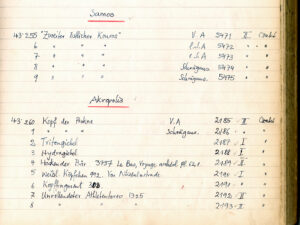 Samos
43'255 "Zweiter östlicher Kouros" V.A 5471 II Contax
6 " " " r.S.A 5472 " "
7 " " " l.S.A 5473 " "
8 " " " Schrägans. 5474 " "
9 " " " Schrägans. 5475 " "
Akropolis
43'260 Kopf der Athena V.A 2185 II Contax
1 " " " Schrägans. 2186 " "
2 Tritongiebel 2187 I "
3 Hydragiebel 2188 I "
4 Hockender Bär 3957 Le Bas, Voyage archéol. pl. 2189 II "
5 Weibl. Köpfchen 2190 I "
6 Kopffragment 2191 " "
7 Unvollendeter Athletentorso 1325 2192 II "
8 " " " 2193 II "